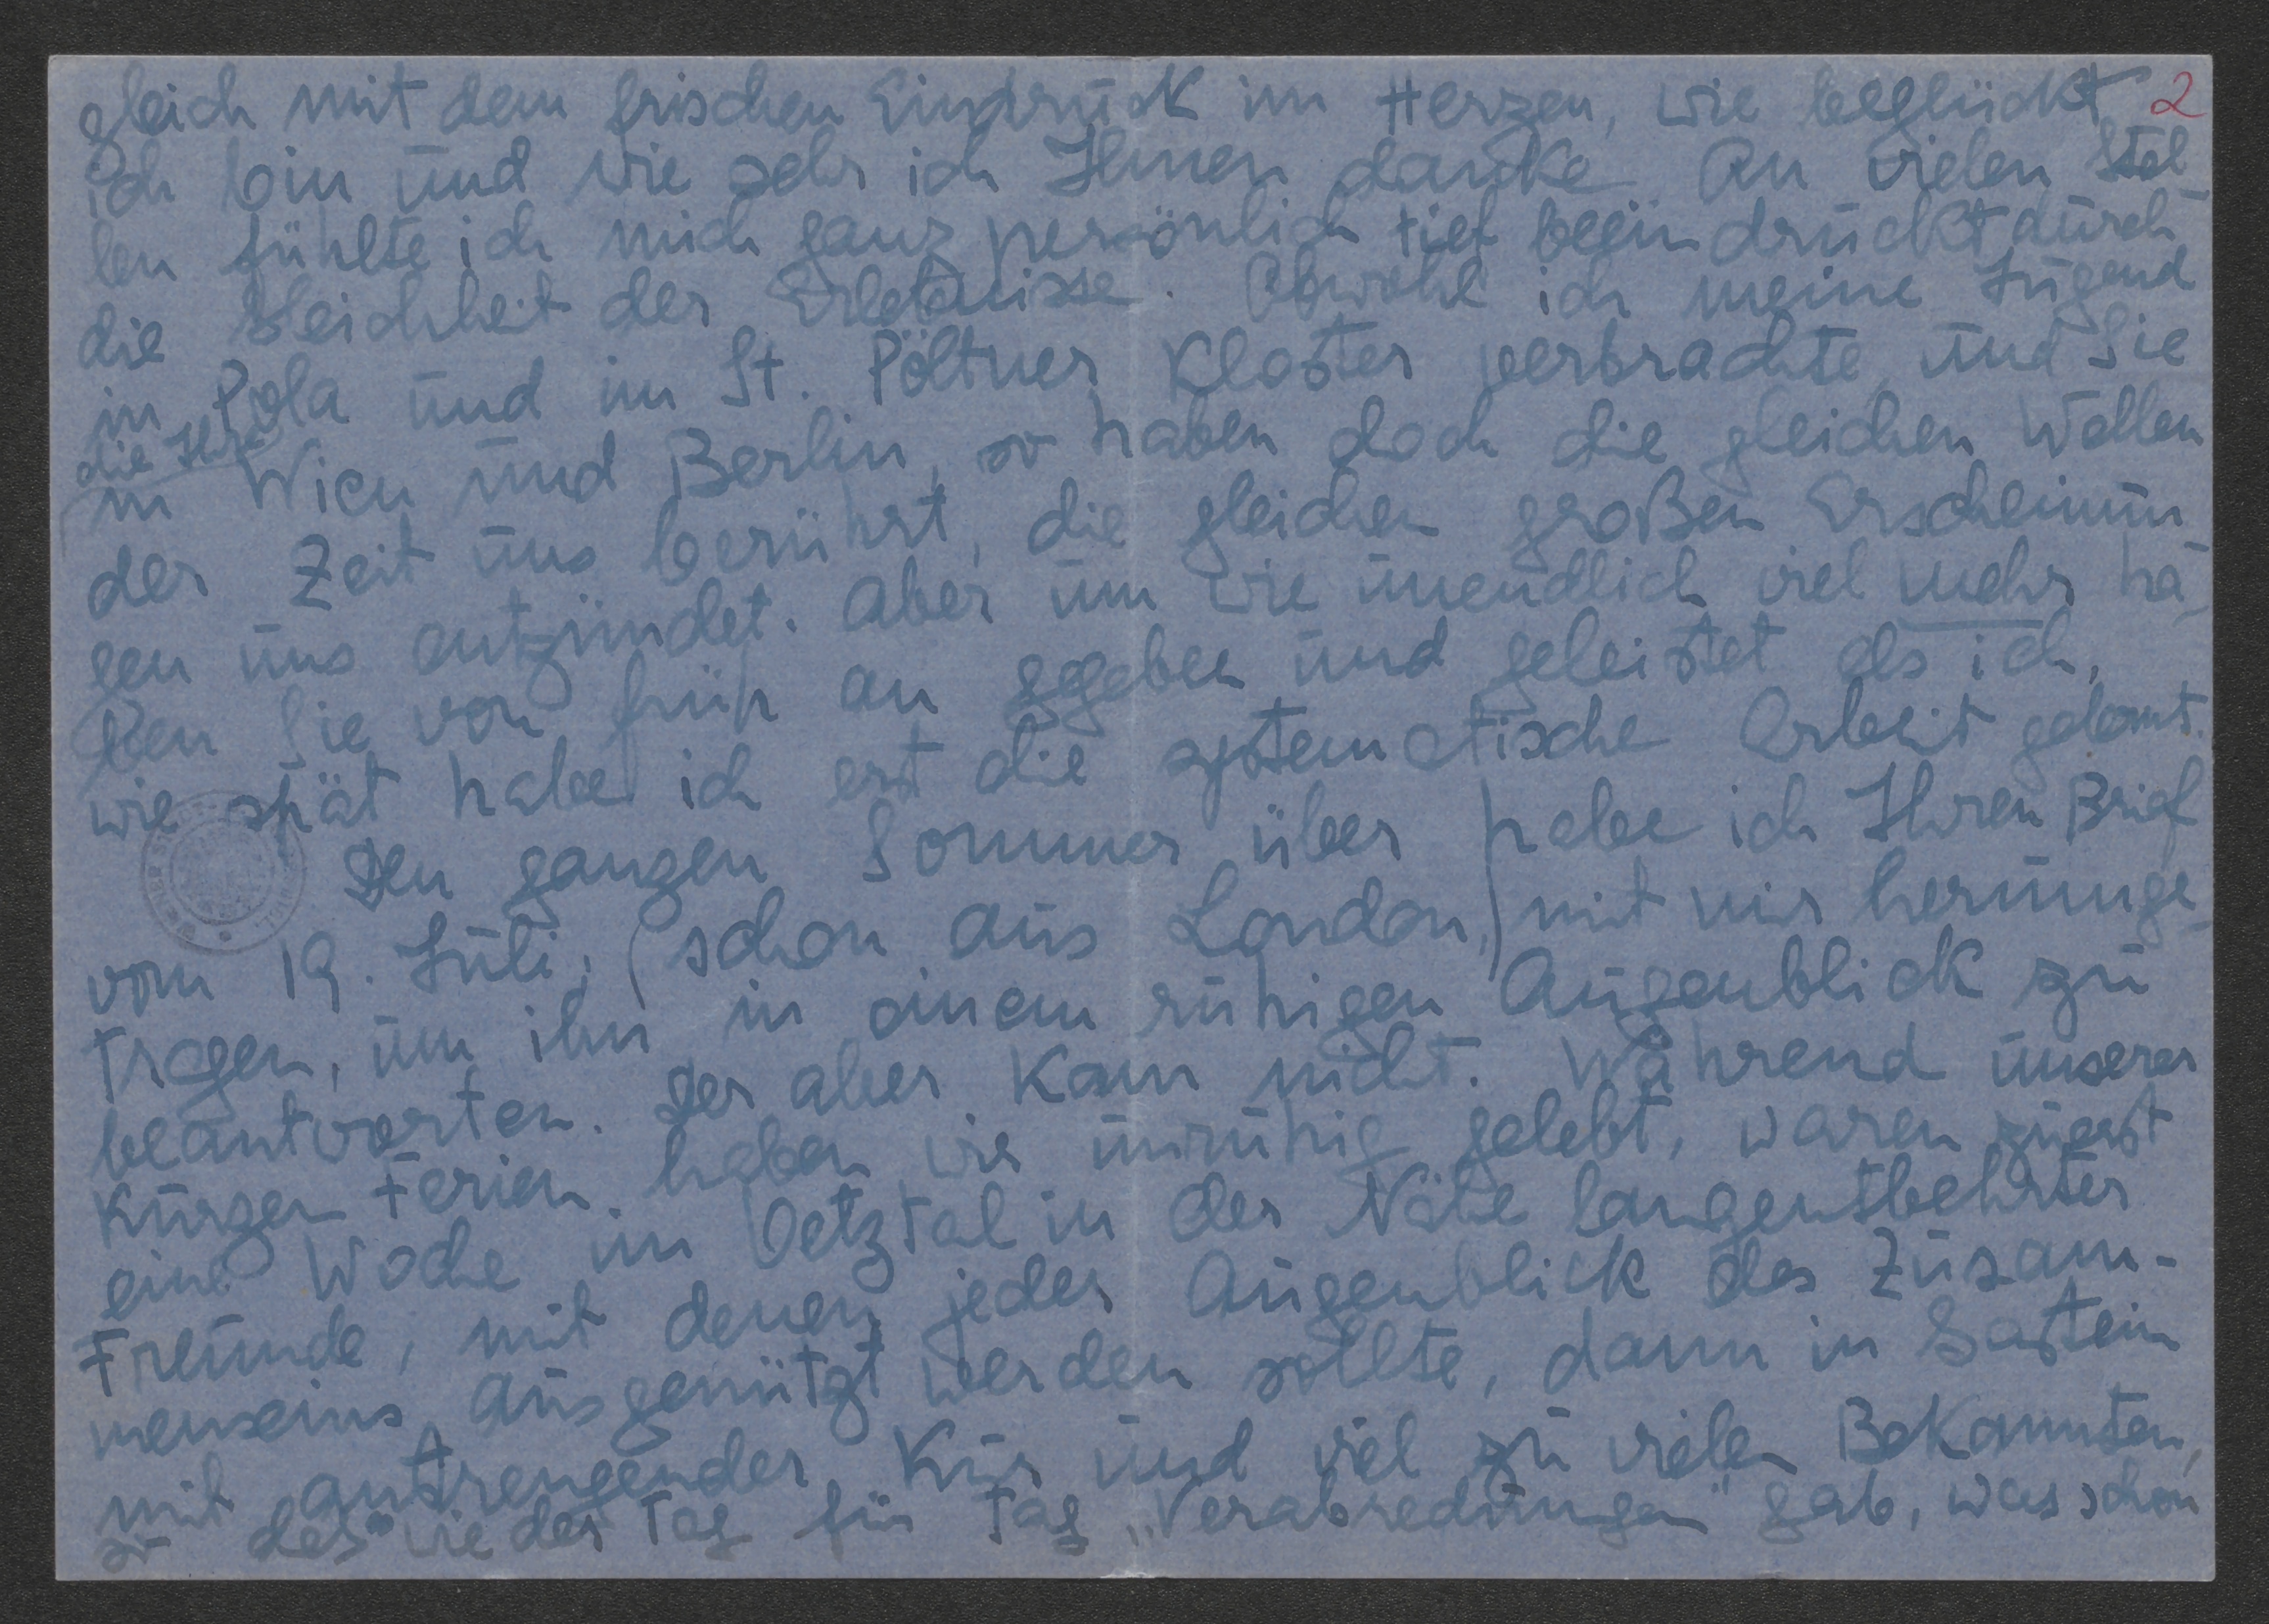 gleich mit dem frischen Eindruck im Herzen, wie beglückt 2
ich bin und wie sehr ich Ihnen danke. An vielen Stel-
len fühlte ich mich ganz persönlich tief beeindruckt durch
die Gleichheit der Erlebnisse. Obwohl ich meine Jugend
in Pola und im St. Pöltner Kloster verbrachte, und Sie
die Ihre
in Wien und Berlin, so haben doch die gleichen Wellen
der Zeit uns berührt, die gleichen großen Erscheinun-
gen uns entzündet. Aber um wie unendlich viel mehr ha-
ben Sie von früh an gegeben und geleistet als ich,
wie spät habe ich erst die systematische Arbeit gelernt.
Den ganzen Sommer über habe ich Ihren Brief
vom 19. Juli, (schon aus London,) mit mir herumge-
tragen, um ihn in einem ruhigen Augenblick zu
beantworten. Der aber kam nicht. Während unserer
kurzen Ferien haben wir unruhig gelebt, waren zuerst
eine Woche im Oetztal in der Nähe langentbehrter
Freunde, mit denen jeder Augenblick des Zusam-
menseins ausgenützt werden sollte, dann in Gastein
mit anstrengender Kur und viel zu vielen Bekannten,
so daß es wieder Tag für Tag „Verabredungen" gab, was schon